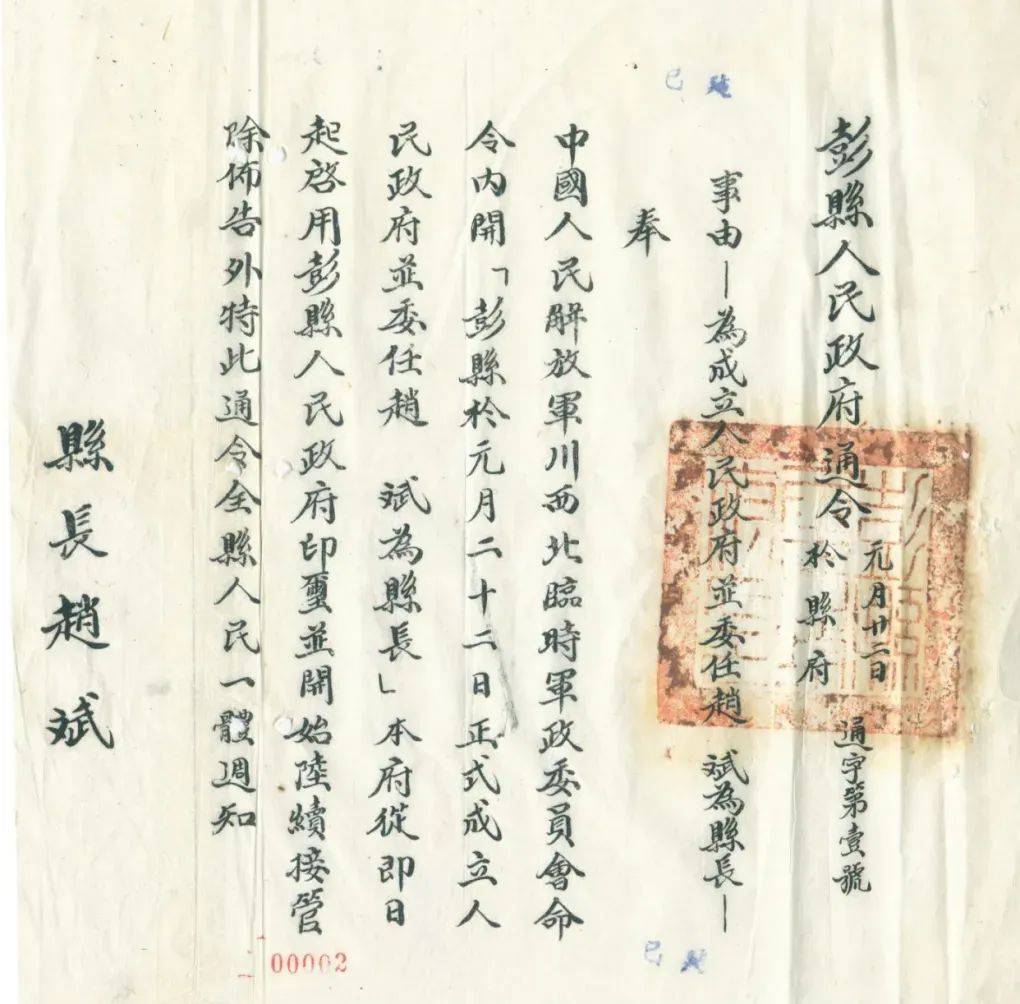 彭縣人民政府通令 元月廿二日於縣府 通字第壹號
事由—為成立人民政府並委任趙 斌為縣長—
奉
中國人民解放軍川西北臨時軍政委員會命
令内開「彭縣於元月二十二日正式成立人
民政府並委任趙 斌為縣長」本府從即日
起啓用彭縣人民政府印璽並開始陸續接管
除佈告外特此通令全縣人民一體週知
縣長趙斌
00002